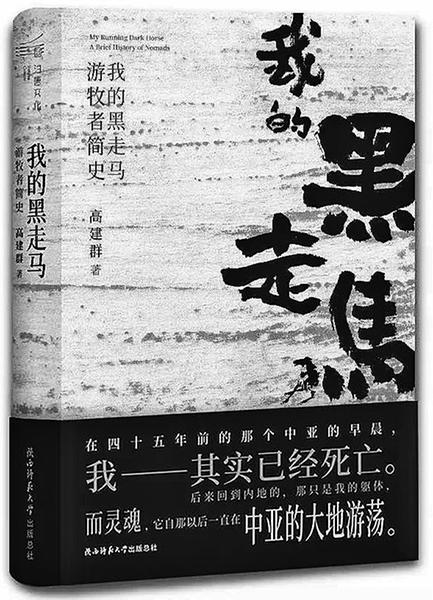 My Running Dark Horse
A Brief History of Nomads
我的黑走马
游牧者简史
高建群 著
我的
黑
走
馬
在四十五年前的那个中亚的早晨，
我——其实已经死亡。
后来回到内地的，那只是我的躯体，
而灵魂，它自那以后一直在中亚的大地游荡。
陕西师范大学出版总社
我的黑走马
游牧者简史
高建群 著
陕西师范大学
出版总社